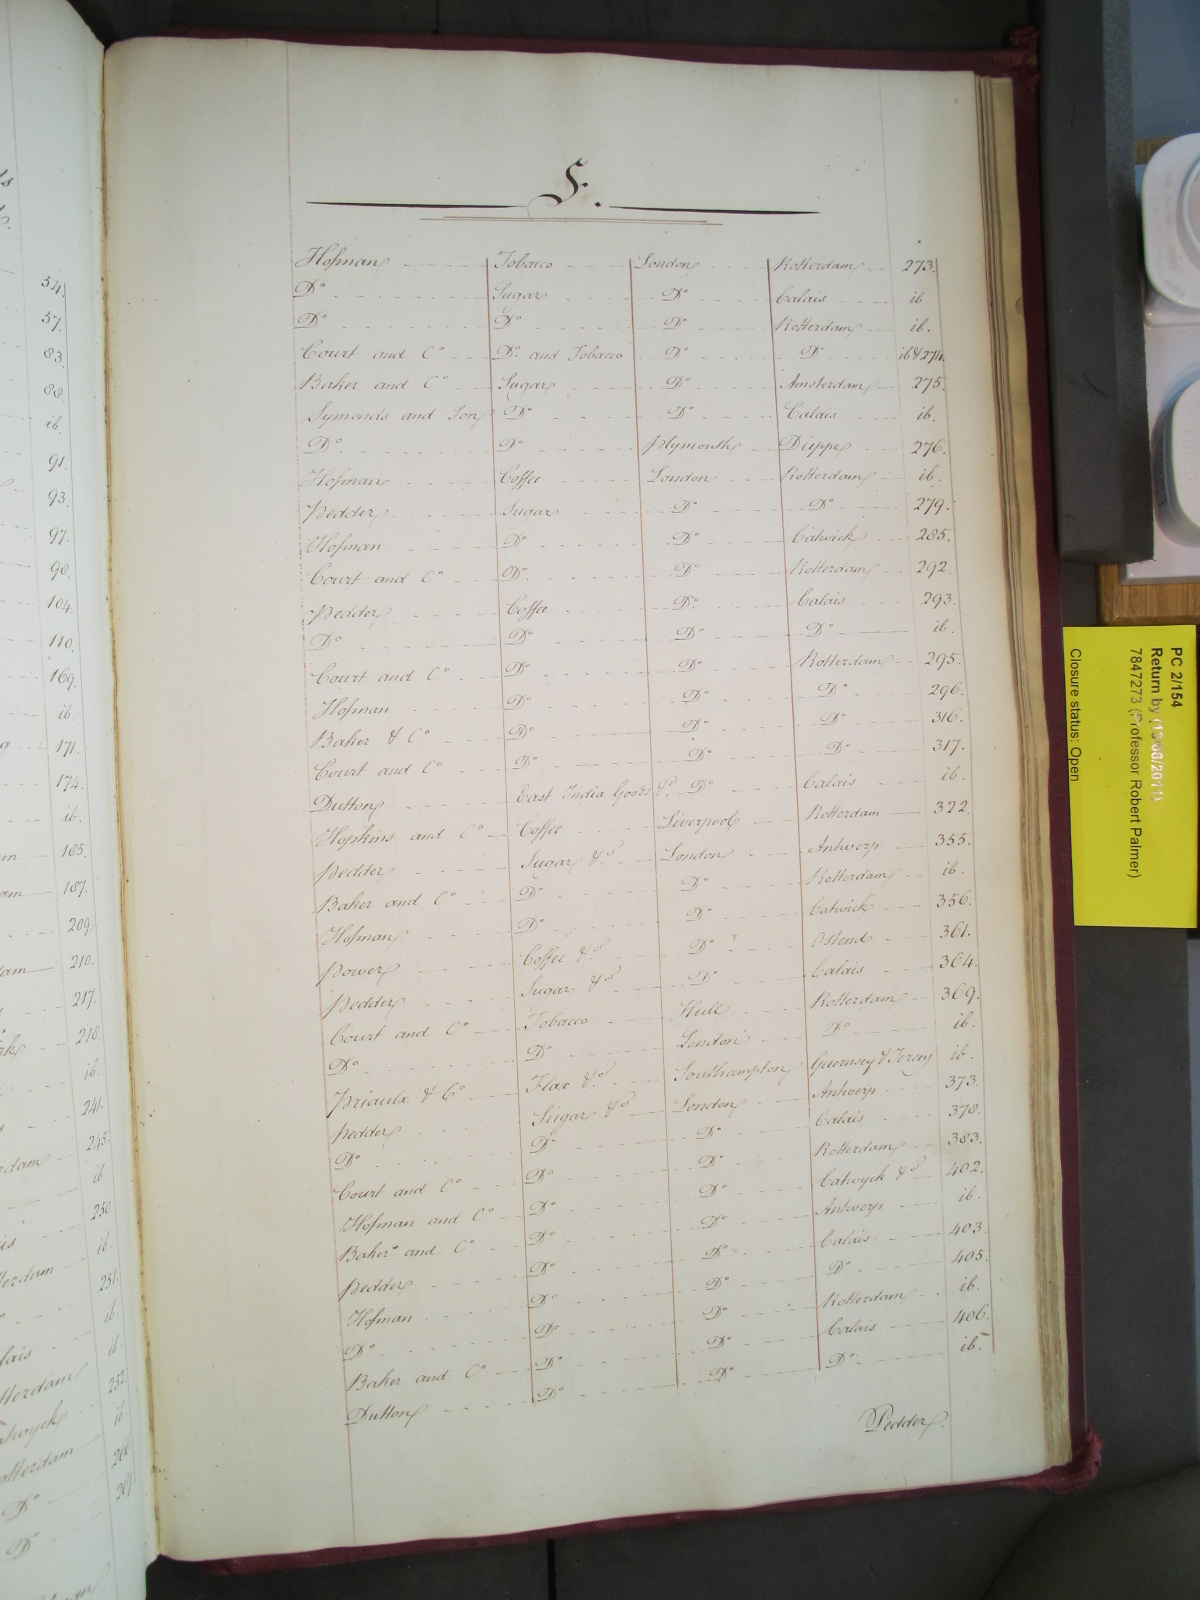 S.
Hofman Tobacco London Rotterdam 273.
Do Sugar Do Calais ib
Do Do Do Rotterdam ib.
Court and Co Do and Tobacco Do Do ib & 274.
Baker and Co Sugar Do Amsterdam 275.
Symonds and Son Do Do Calais ib.
Do Do Plymouth Dieppe 276.
Hofman Coffee London Rotterdam ib.
Pedder Sugar Do Do 279.
Hofman Do Do Catwick 285.
Court and Co Do Do Rotterdam 292.
Pedder Coffee Do Calais 293.
Do Do Do Do ib.
Court and Co Do Do Rotterdam 295.
Hofman Do Do Do 296.
Baker & Co Do Do Do 316.
Court and Co Do Do Do 317.
Dutton East India Goods &c Do Calais ib.
Hopkins and Co Coffee Liverpool Rotterdam 322.
Pedder Sugar &c London Antwerp 355.
Baker and Co Do Do Rotterdam ib.
Hofman Do Do Catwick 356.
Power Coffee &c Do Ostend 361.
Pedder Sugar &c Do Calais 364.
Court and Co Tobacco Hull Rotterdam 369.
Do Do London Do ib.
Priaulx & Co Flax &c Southampton Guernsey & Jersey ib.
Pedder Sugar &c London Antwerp 373.
Do Do Do Calais 378.
Court and Co Do Do Rotterdam 383.
Hofman and Co Do Do Catwyck &c 402.
Baker and Co Do Do Antwerp ib.
Pedder Do Do Calais 403.
Hofman Do Do Do 405.
Do Do Do Rotterdam ib.
Baker and Co Do Do Calais 406.
Dutton Do Do Do ib.
Pedder
54.
57.
83.
88
ib.
91.
93.
97.
98.
104.
110.
169.
ib.
171.
174.
ib.
185.
187.
209.
210.
217.
218.
ib.
241.
245.
ib.
250.
ib.
251.
ib.
ib.
252
ib.
PC 2/154
Return by (13/08/2011)
7847273 (Professor Robert Palmer)
Closure status: Open